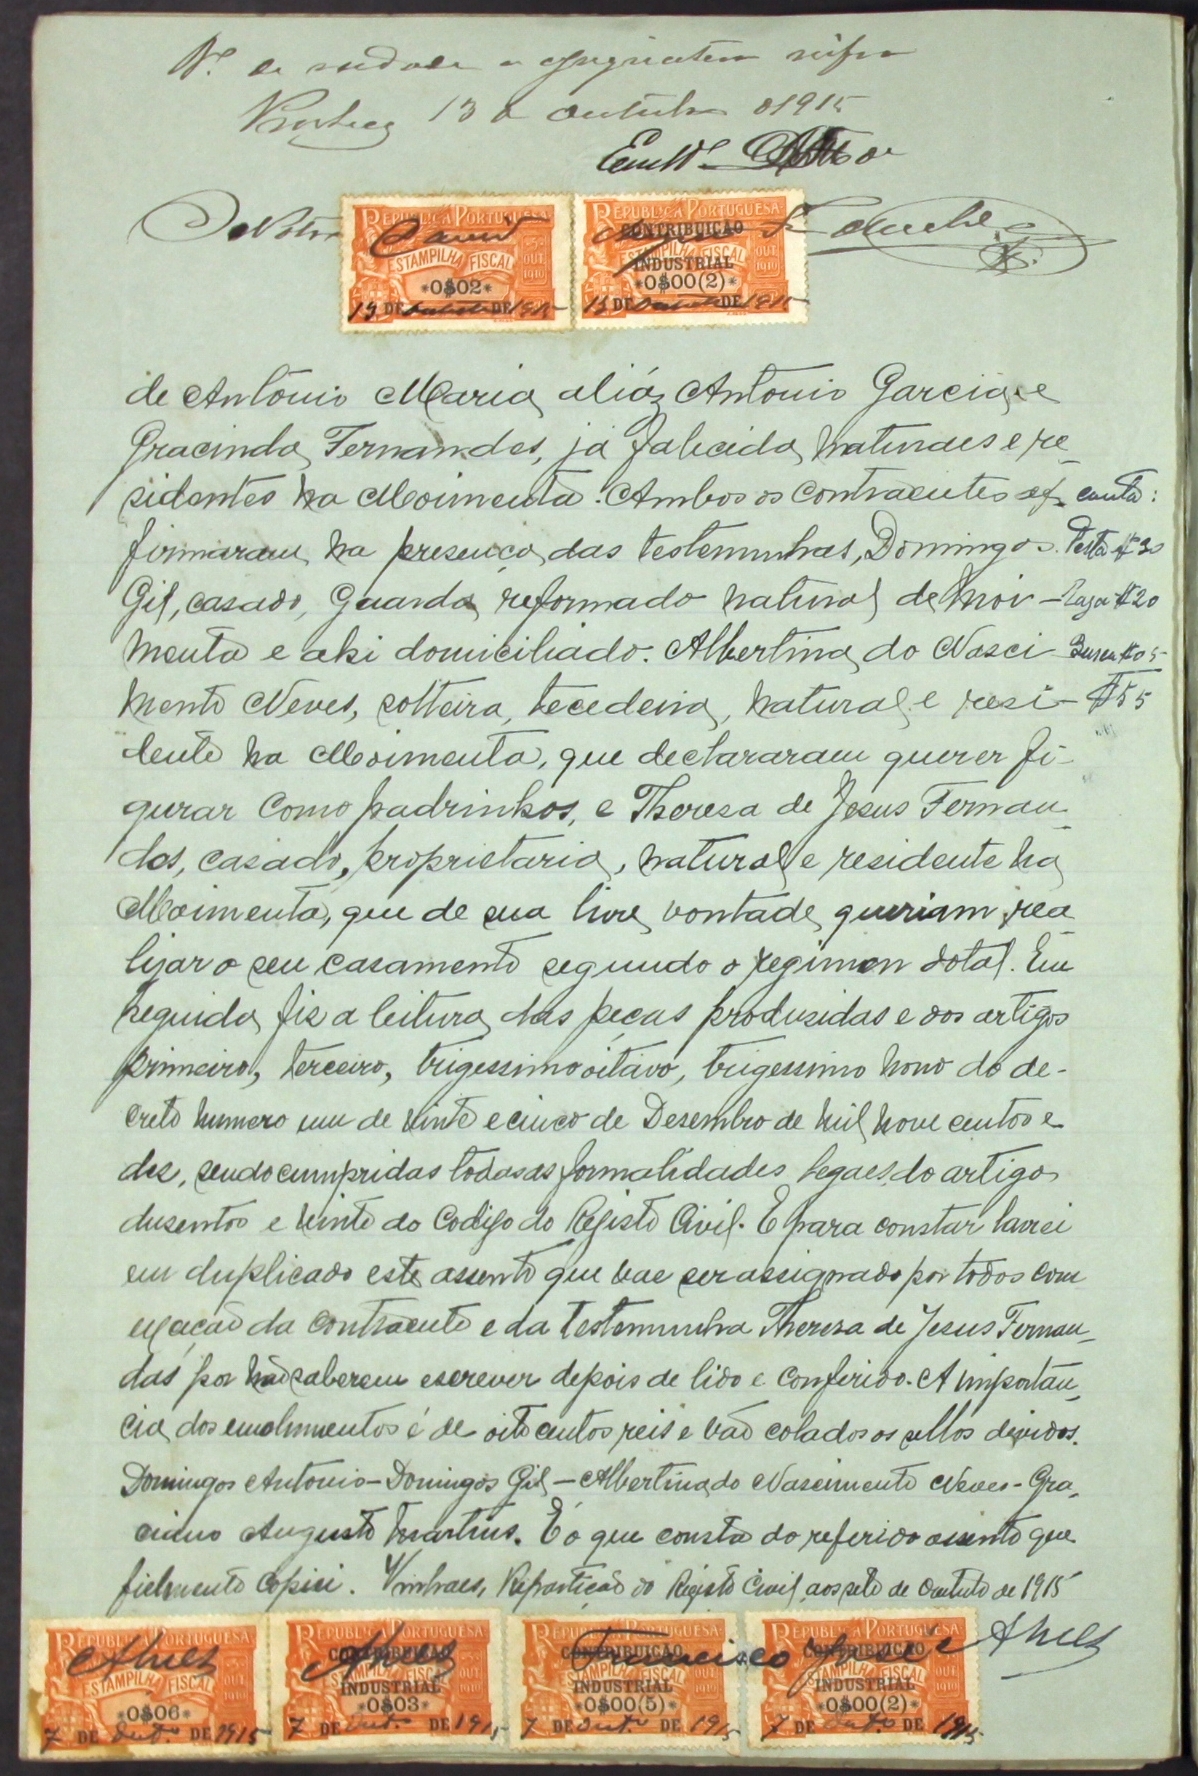 13 de outubro d 1915
REPUBLICA PORTUGUESA
ESTAMPILHA FISCAL
*0$02*
13 DE Outubro DE 1915
REPUBLICA PORTUGUESA
CONTRIBUIÇÃO
ESTAMPILHA FISCAL
INDUSTRIAL
*0$00(2)*
13 DE Outubro DE 1915
de Antonio Maria, aliás Antonio Garcia, e
Gracinda Fernandes, já falecida, naturaes e re-
sidentes na Moimenta. Ambos os contraentes af-
firmaram na presença das testemunhas, Domingos
Gil, casado, Guarda reformado natural de Moi-
menta e aki domiciliado. Albertina do Nasci-
mento Neves, solteira, tecedeira, natural e resi-
dente na Moimenta, que declararam querer fi-
gurar como padrinhos, e Thereza de Jesus Fernan-
des, casado, proprietaria, natural e residente na
Moimenta, que de sua livre vontade queriam rea
lizar o seu casamento segundo o regimen dotal. Em
seguida fiz a leitura das peças produsidas e dos artigos
primeiro, terceiro, trigessimo oitavo, trigessimo nono do de-
creto numero um de vinte e cinco de Desembro de mil nove centos e
des, sendo cumpridas todas as formalidades legaes do artigo
dusentos e vinte do Codigo do Registo Civil. E para constar lavrei
em duplicado este assento que vae ser assignado por todos com
exceção da contraente e da testemunha Thereza de Jesus Fernan-
das por não saberem escrever depois de lido e conferido. A importan-
cia dos emolumentos é de oito centos reis e vão colados os sellos devidos.
Domingos Antonio - Domingos Gil - Albertina do Nascimento Neves - Gra-
ciano Augusto Martins. E o que consta do referido assento que
fielmente copiei. Vinhaes, Repartição do Registo Civil, aos sete de Outubro de 1915
conta:
Testa $30
Rasa $20
Busca $05
$55
REPUBLICA PORTUGUESA
ESTAMPILHA FISCAL
Alves
*0$06*
7 DE Out.º DE 1915
REPUBLICA PORTUGUESA
CONTRIBUIÇÃO
ESTAMPILHA FISCAL
INDUSTRIAL
Alves
*0$03*
7 DE Out.º DE 1915
REPUBLICA PORTUGUESA
CONTRIBUIÇÃO
ESTAMPILHA FISCAL
INDUSTRIAL
*0$00(5)*
7 DE Out.º DE 1915
REPUBLICA PORTUGUESA
CONTRIBUIÇÃO
ESTAMPILHA FISCAL
INDUSTRIAL
*0$00(2)*
7 DE Outº DE 1915
Francisco José Alves